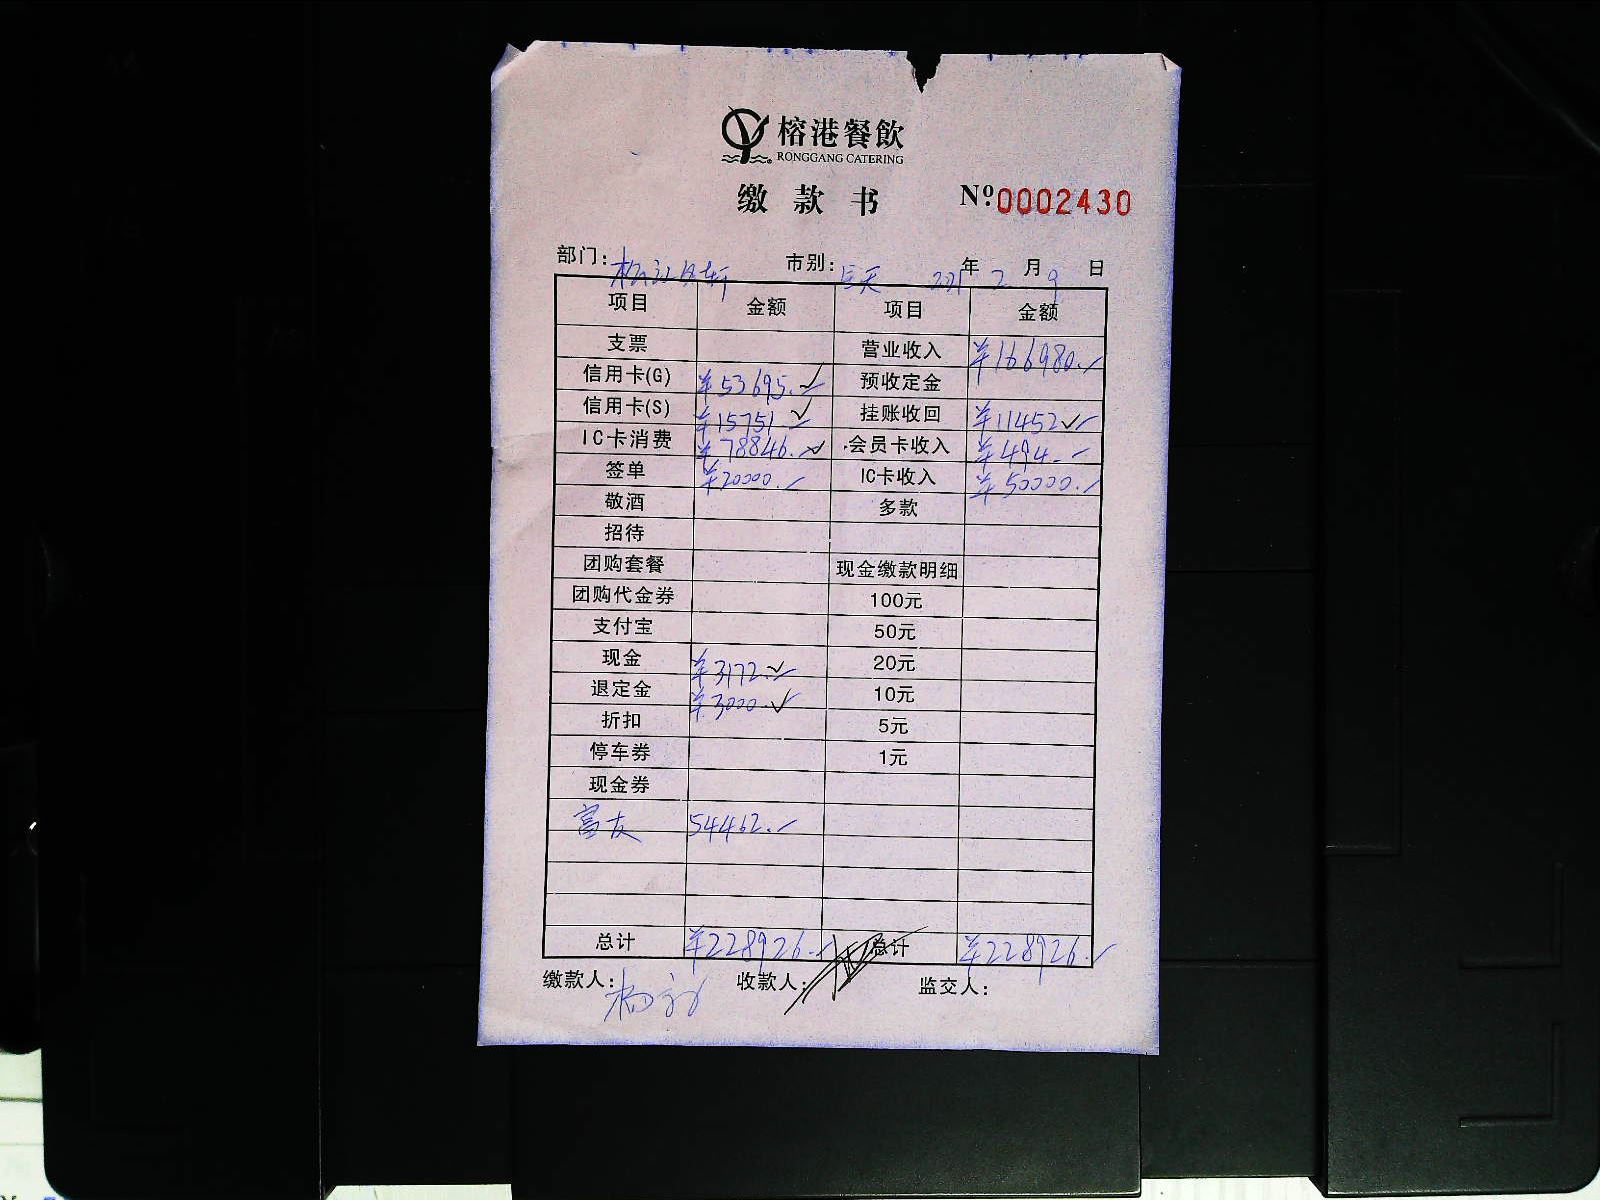 榕港餐飲
RONGGANG CATERING
缴款书 Nº 0002430
部门： 市别： 年 2 月 9 日
项目 金额 项目 金额
支票 营业收入 ¥166980.
信用卡(G) ¥53695. 预收定金
信用卡(S) ¥15751 挂账收回 ¥11452
IC卡消费 ¥78846. 会员卡收入 ¥494.
签单 ¥20000. IC卡收入 ¥50000.
敬酒 多款
招待
团购套餐 现金缴款明细
团购代金券 100元
支付宝 50元
现金 ¥3172. 20元
退定金 ¥3000. 10元
折扣 5元
停车券 1元
现金券
富友 54462.
总计 ¥228926. 总计 ¥228926.
缴款人： 收款人： 监交人：